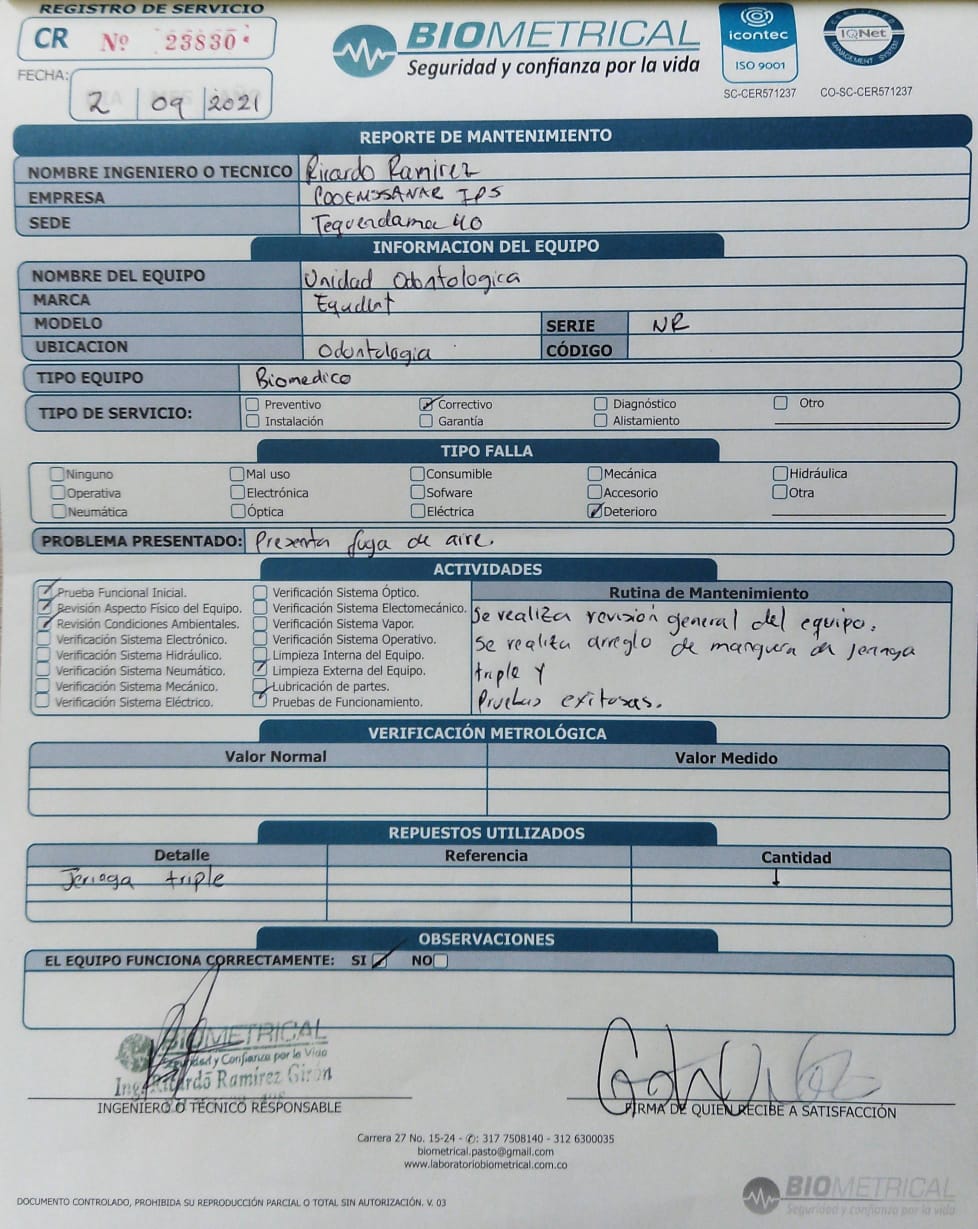 REGISTRO DE SERVICIO
CR Nº 23830
BIOMETRICAL
Seguridad y confianza por la vida
icontec
ISO 9001
SC-CER571237
CERTIFIED
IQNet
MANAGEMENT SYSTEM
CO-SC-CER571237
FECHA:
2 | 09 | 2021
REPORTE DE MANTENIMIENTO
NOMBRE INGENIERO O TECNICO Ricardo Ramirez
EMPRESA PROEMSSANAR IPS
SEDE Tequendama 40
INFORMACION DEL EQUIPO
NOMBRE DEL EQUIPO Unidad Odontologica
MARCA Equdent
MODELO SERIE NR
UBICACION Odontologia CÓDIGO
TIPO EQUIPO Biomedico
TIPO DE SERVICIO: Preventivo Correctivo Diagnóstico Otro
Instalación Garantía Alistamiento
TIPO FALLA
Ninguno Mal uso Consumible Mecánica Hidráulica
Operativa Electrónica Sofware Accesorio Otra
Neumática Óptica Eléctrica Deterioro
PROBLEMA PRESENTADO: Presenta fuga de aire.
ACTIVIDADES
Prueba Funcional Inicial.
Revisión Aspecto Físico del Equipo.
Revisión Condiciones Ambientales.
Verificación Sistema Electrónico.
Verificación Sistema Hidráulico.
Verificación Sistema Neumático.
Verificación Sistema Mecánico.
Verificación Sistema Eléctrico.
Verificación Sistema Óptico.
Verificación Sistema Electomecánico.
Verificación Sistema Vapor.
Verificación Sistema Operativo.
Limpieza Interna del Equipo.
Limpieza Externa del Equipo.
Lubricación de partes.
Pruebas de Funcionamiento.
Rutina de Mantenimiento
Se realiza revisión general del equipo.
Se realiza arreglo de manguera de jeringa
triple y
Pruebas exitosas.
VERIFICACIÓN METROLÓGICA
Valor Normal Valor Medido
REPUESTOS UTILIZADOS
Detalle Referencia Cantidad
Jeringa triple 1
OBSERVACIONES
EL EQUIPO FUNCIONA CORRECTAMENTE: SI NO
BIOMETRICAL
Seguridad y Confianza por la Vida
Ing. Ricardo Ramírez Girón
INGENIERO O TÉCNICO RESPONSABLE
FIRMA DE QUIEN RECIBE A SATISFACCIÓN
Carrera 27 No. 15-24 - ✆: 317 7508140 - 312 6300035
biometrical.pasto@gmail.com
www.laboratoriobiometrical.com.co
DOCUMENTO CONTROLADO, PROHIBIDA SU REPRODUCCIÓN PARCIAL O TOTAL SIN AUTORIZACIÓN. V. 03
BIOMETRICAL
Seguridad y confianza por la vida